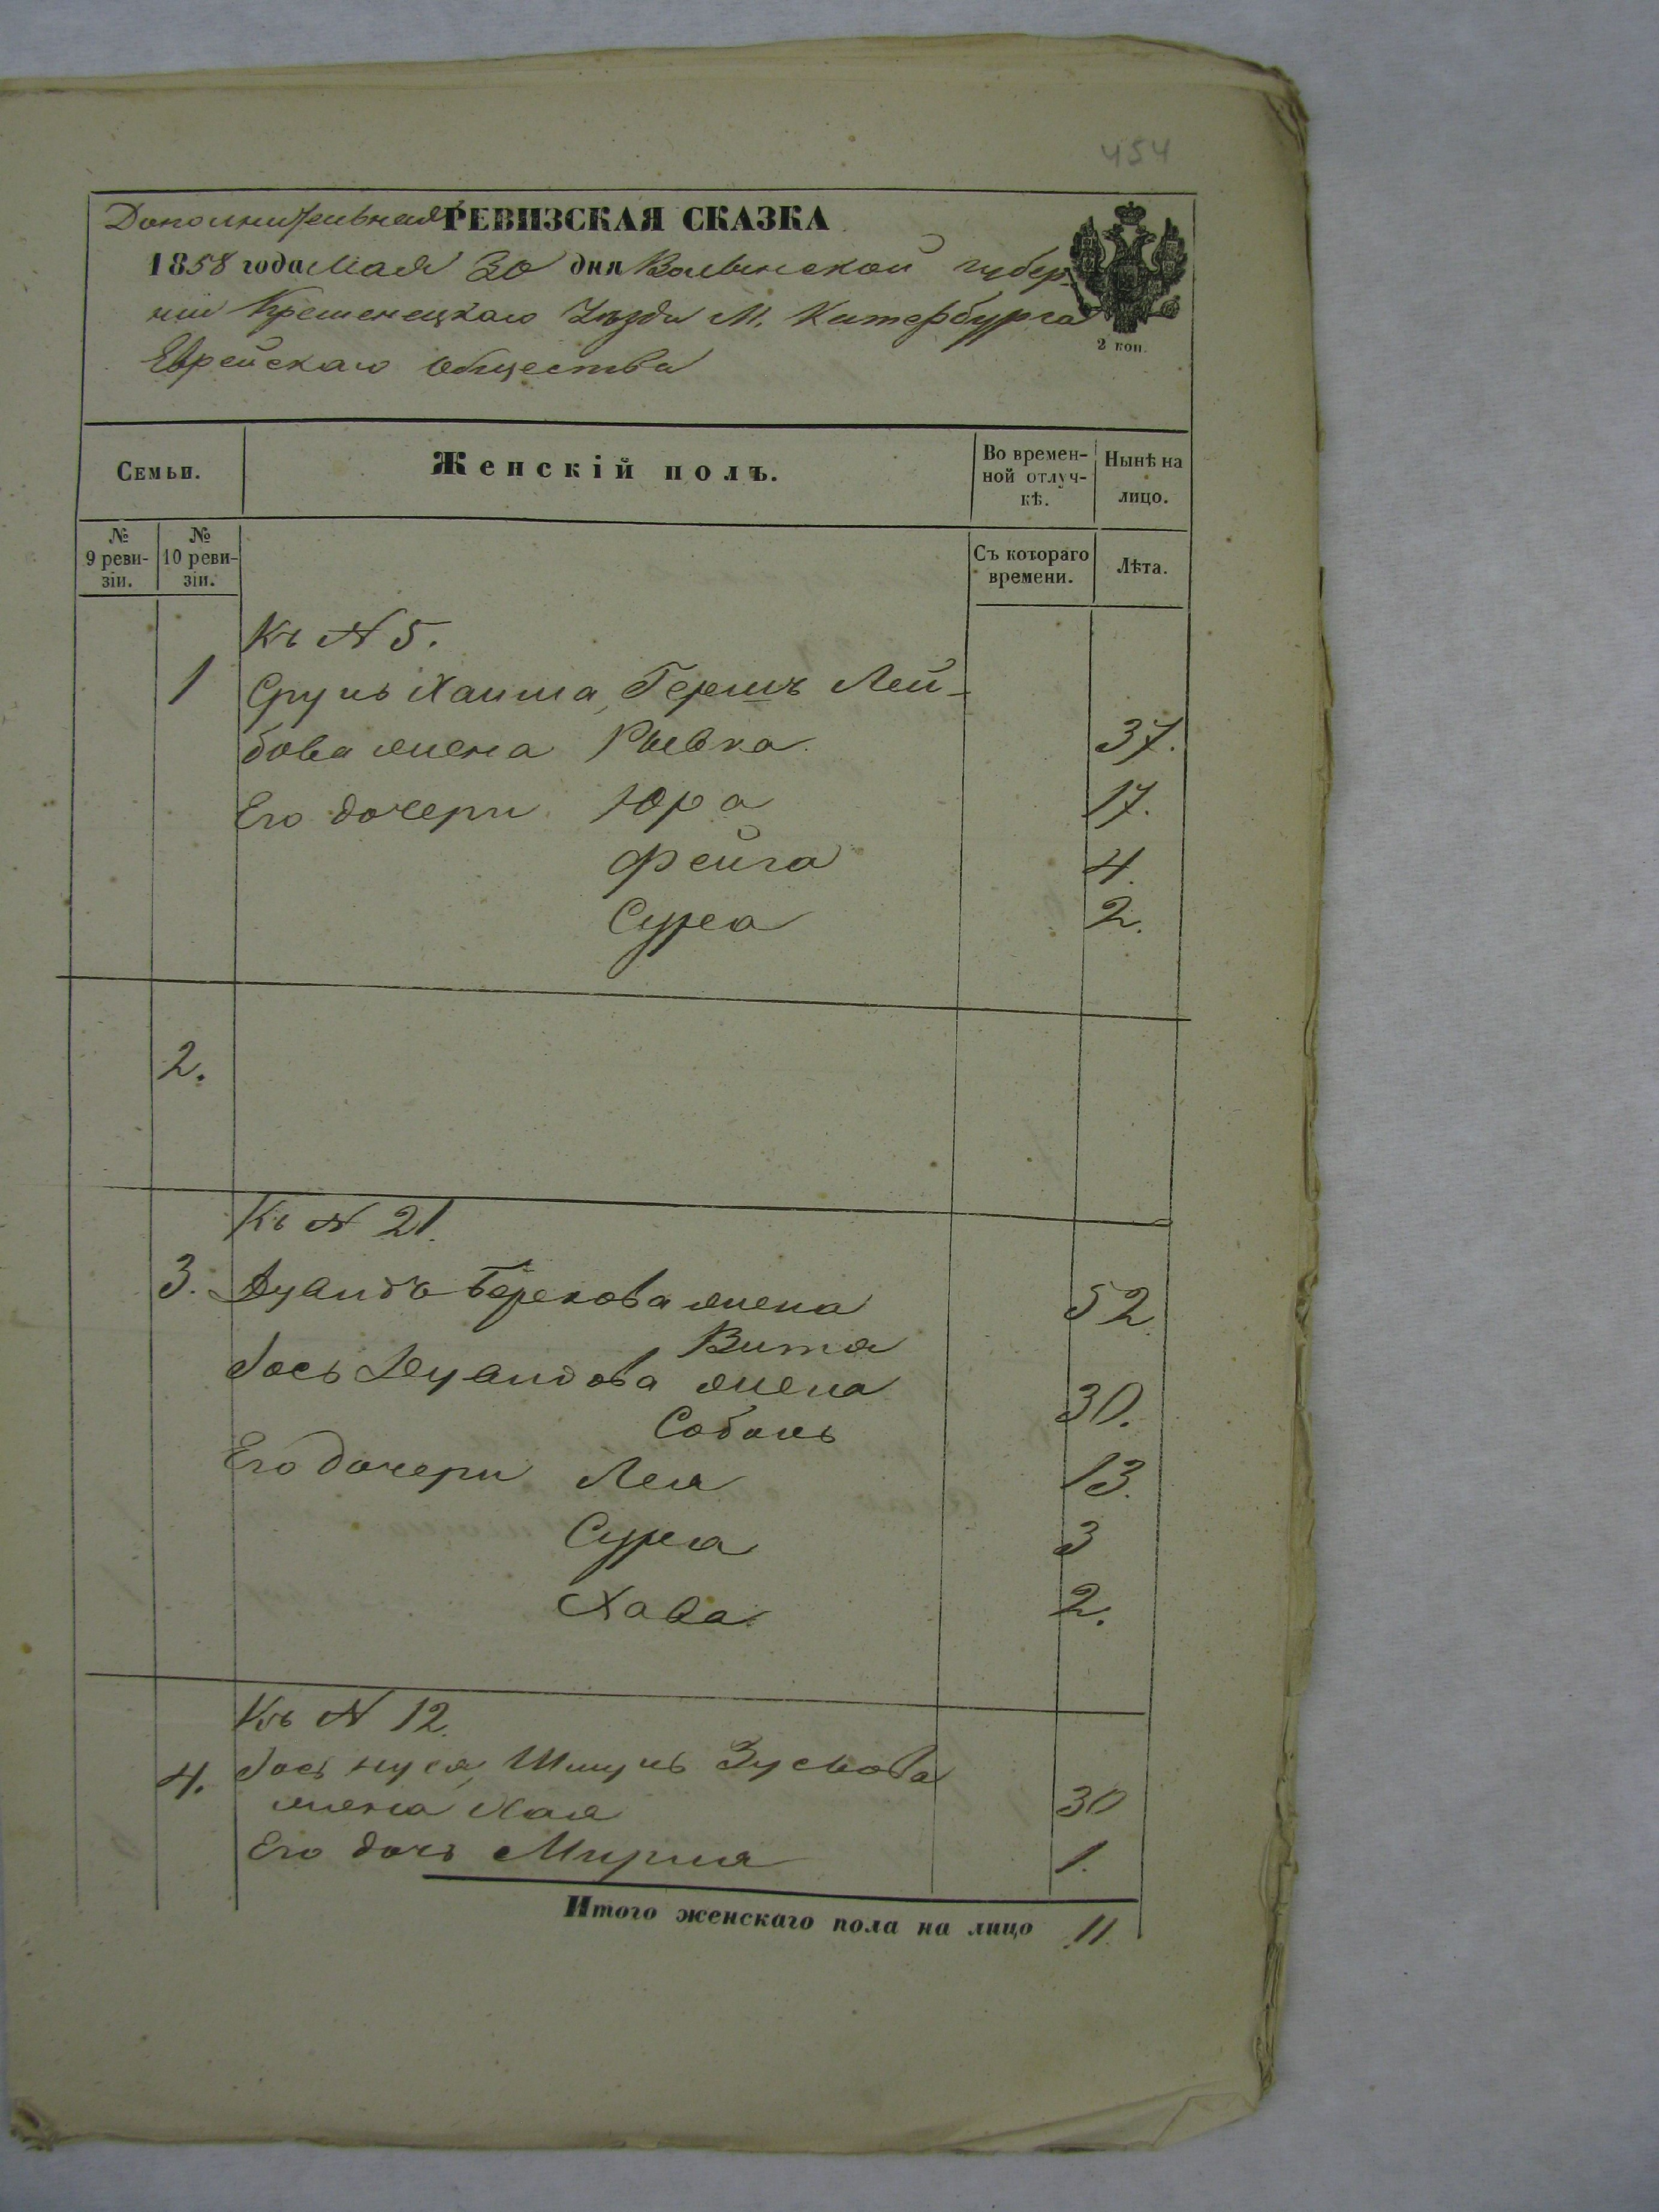 454
Дополнительная РЕВИЗСКАЯ СКАЗКА
1858 года Мая 30 дня Волынской губер-
нии Кременецкаго Уѣзда М. Катербурга
Еврейскаго общества
2 коп.
Семьи.
Женскій полъ.
Во времен-
ной отлуч-
кѣ.
Нынѣ на
лицо.
№
9 реви-
зіи.
№
10 реви-
зіи.
Съ котораго
времени.
Лѣта.
Къ N 5.
1 Сруль Хаима, Гершъ Лей-
бова жена Рывка 37.
Его дочери Юра 17.
Фейга 4.
Сурa 2.
2.
Къ N 21.
3. Дувидъ Берекова жена 52
Витя
Іось Дувидова жена 30.
Соболь
Его дочери Лея 13.
Сура 3
Хава 2.
Къ N 12.
4. Іось нуся, Шмуль Зусьова
жена Хая 30
Его дочь Мирия 1.
Итого женскаго пола на лицо 11.